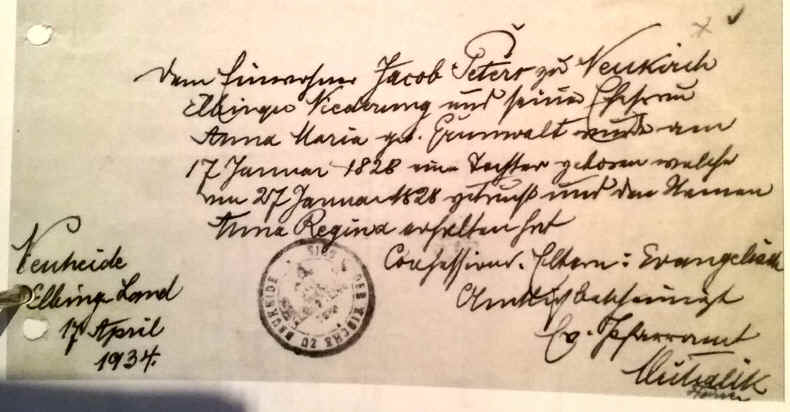 Dem Einwohner Jacob Peters zu Neukirch
Elbinger Niederung und seine Ehefrau
Anna Maria geb. Grunwalt wurde am
17 Januar 1828 eine Tochter geboren welche
am 27 Januar 1828 getauft und den Namen
Anna Regina erhalten hat
Confession d. Eltern: Evangelisch
Neuheide
Elbing Land
17 April
1934.
SIEGEL DER KIRCHE ZU NEUHEIDE
Amtlich bescheinigt
Ev. Pfarramt
Pfarrer